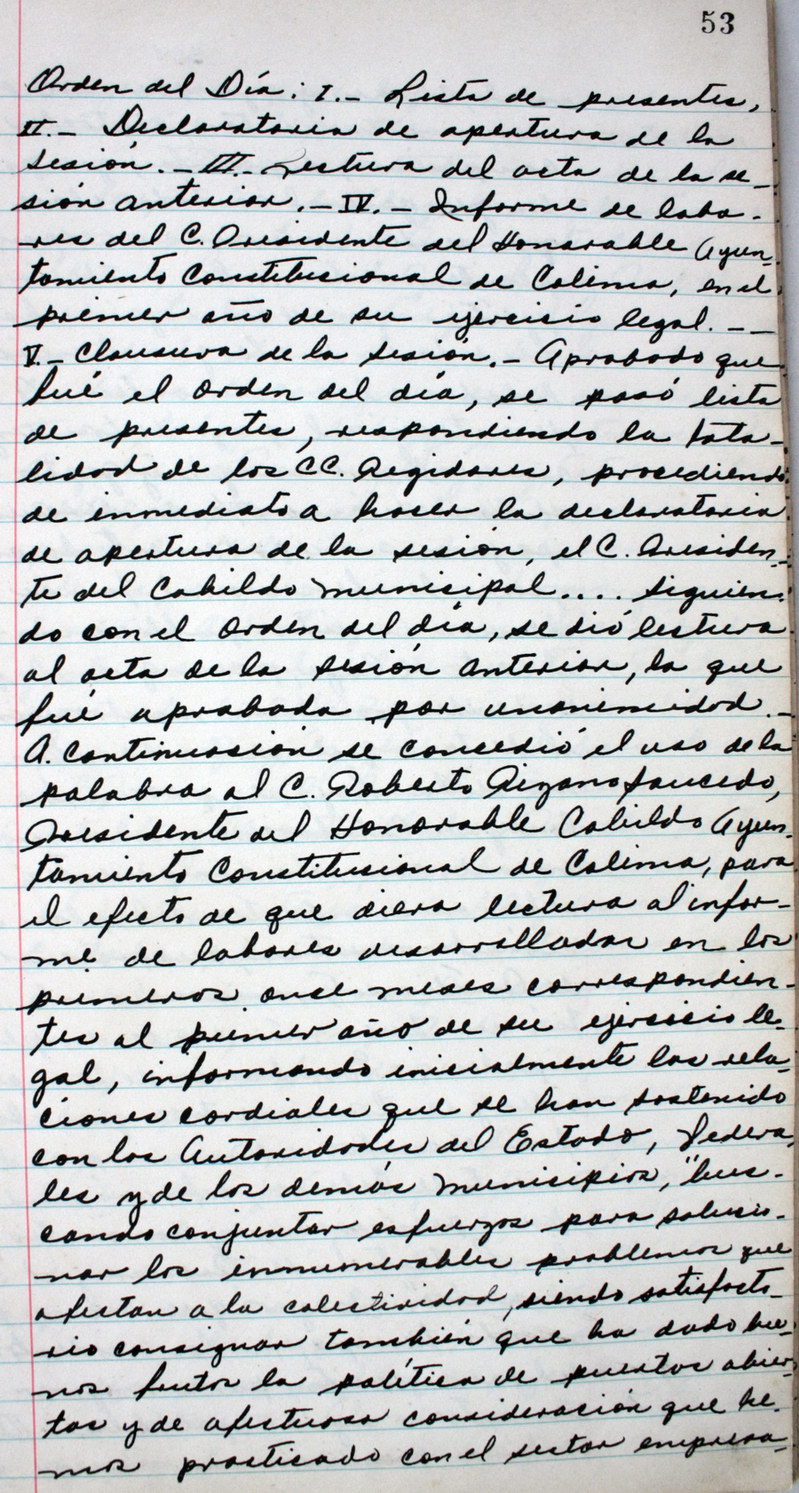 53
Orden del Día: I.- Lista de presentes,
II.- Declaratoria de apertura de la
sesión.- III.- Lectura del acta de la se-
sión anterior.- IV.- Informe de labo-
res del C. Presidente del Honorable Ayun-
tamiento Constitucional de Colima, en el
primer año de su ejercicio legal. - -
V.- Clausura de la sesión.- Aprobado que
fué el orden del día, se pasó lista
de presentes, respondiendo la tota-
lidad de los CC. Regidores, procediendo
de inmediato a hacer la declaratoria
de apertura de la sesión, el C. Presiden-
te del Cabildo Municipal.... Siguien-
do con el orden del día, se dió lectura
al acta de la sesión anterior, la que
fué aprobada por unanimidad.-
A continuación se concedió el uso de la
palabra al C. Roberto Pizano Saucedo,
Presidente del Honorable Cabildo Ayun-
tamiento Constitucional de Colima, para
el efecto de que diera lectura al infor-
me de labores desarrolladas en los
primeros once meses correspondien-
tes al primer año de su ejercicio le-
gal, informando inicialmente las rela-
ciones cordiales que se han sostenido
con las Autoridades del Estado, Federa-
les y de los demás Municipios, "bus-
cando conjuntar esfuerzos para solucio-
nar los innumerables problemas que
afectan a la colectividad, siendo satisfacto-
rio consignar también que ha dado bue-
nos frutos la política de puertas abier-
tas y de afectuosa consideración que he-
mos practicado con el sector empresa-